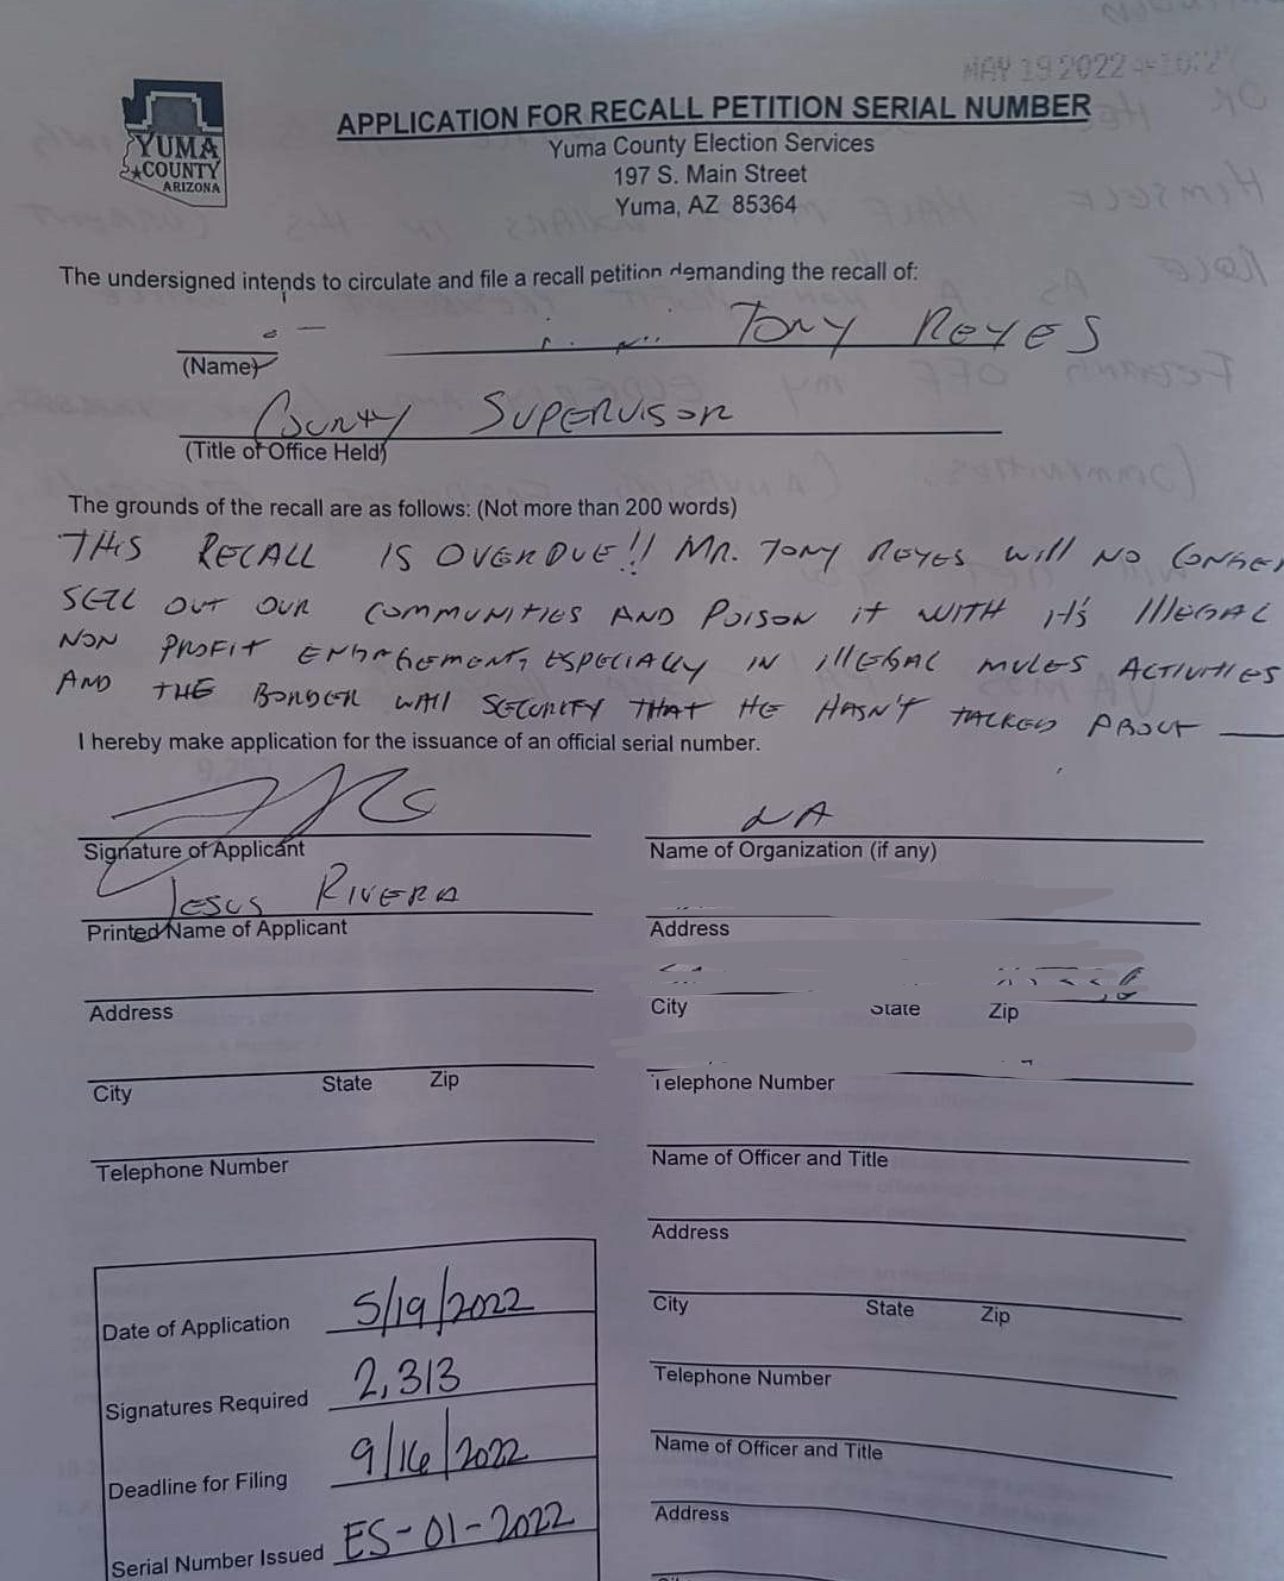 MAY 19 2022
YUMA
COUNTY
ARIZONA
APPLICATION FOR RECALL PETITION SERIAL NUMBER
Yuma County Election Services
197 S. Main Street
Yuma, AZ 85364
The undersigned intends to circulate and file a recall petition demanding the recall of:
TONY REYES
(Name)
COUNTY SUPERVISOR
(Title of Office Held)
The grounds of the recall are as follows: (Not more than 200 words)
THIS RECALL IS OVERDUE!! MR. TONY REYES will NO LONGER
SELL OUT OUR COMMUNITIES AND POISON it WITH it's IllEGAL
NON PROFIT ENGAGEMENT, ESPECIALLY IN illEGAL MULES ACTIVITIES
AND THE BORDER WAll SECURITY THAT HE HASN'T TALKED ABOUT
I hereby make application for the issuance of an official serial number.
Signature of Applicant
JESUS RIVERA
Printed Name of Applicant
Address
City State Zip
Telephone Number
Date of Application 5/19/2022
Signatures Required 2,313
Deadline for Filing 9/16/2022
Serial Number Issued ES-01-2022
NA
Name of Organization (if any)
Address
City State Zip
Telephone Number
Name of Officer and Title
Address
City State Zip
Telephone Number
Name of Officer and Title
Address